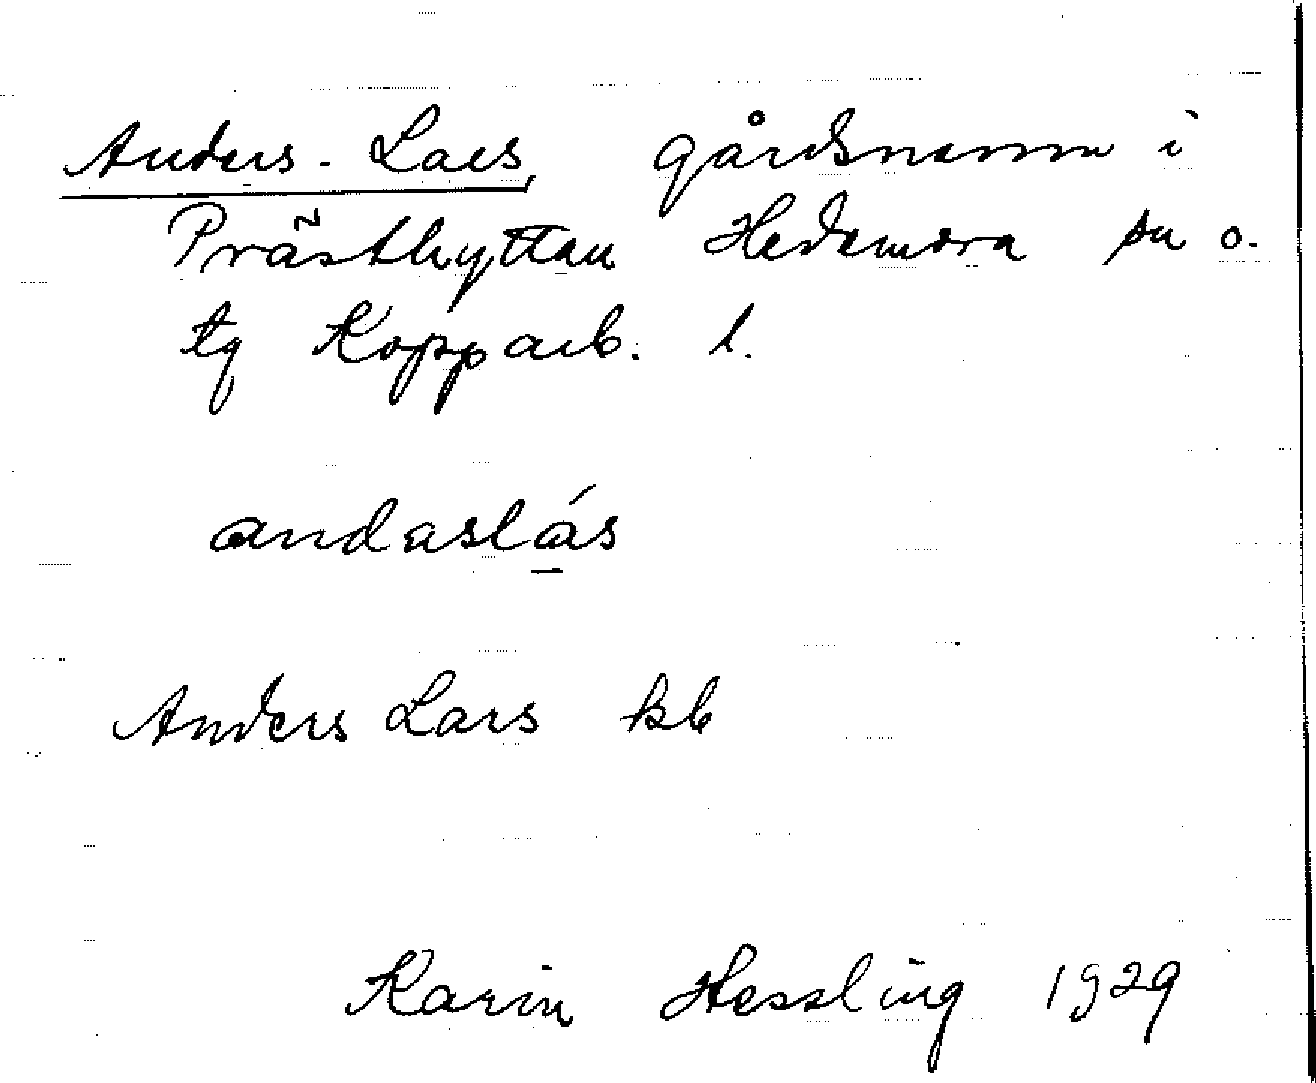 Anders-Lars, gårdsnamn i
Prästhyttan Hedemora sn o.
tg Kopparb. l.
andaslás
Anders Lars kb
Karin Hessling 1929